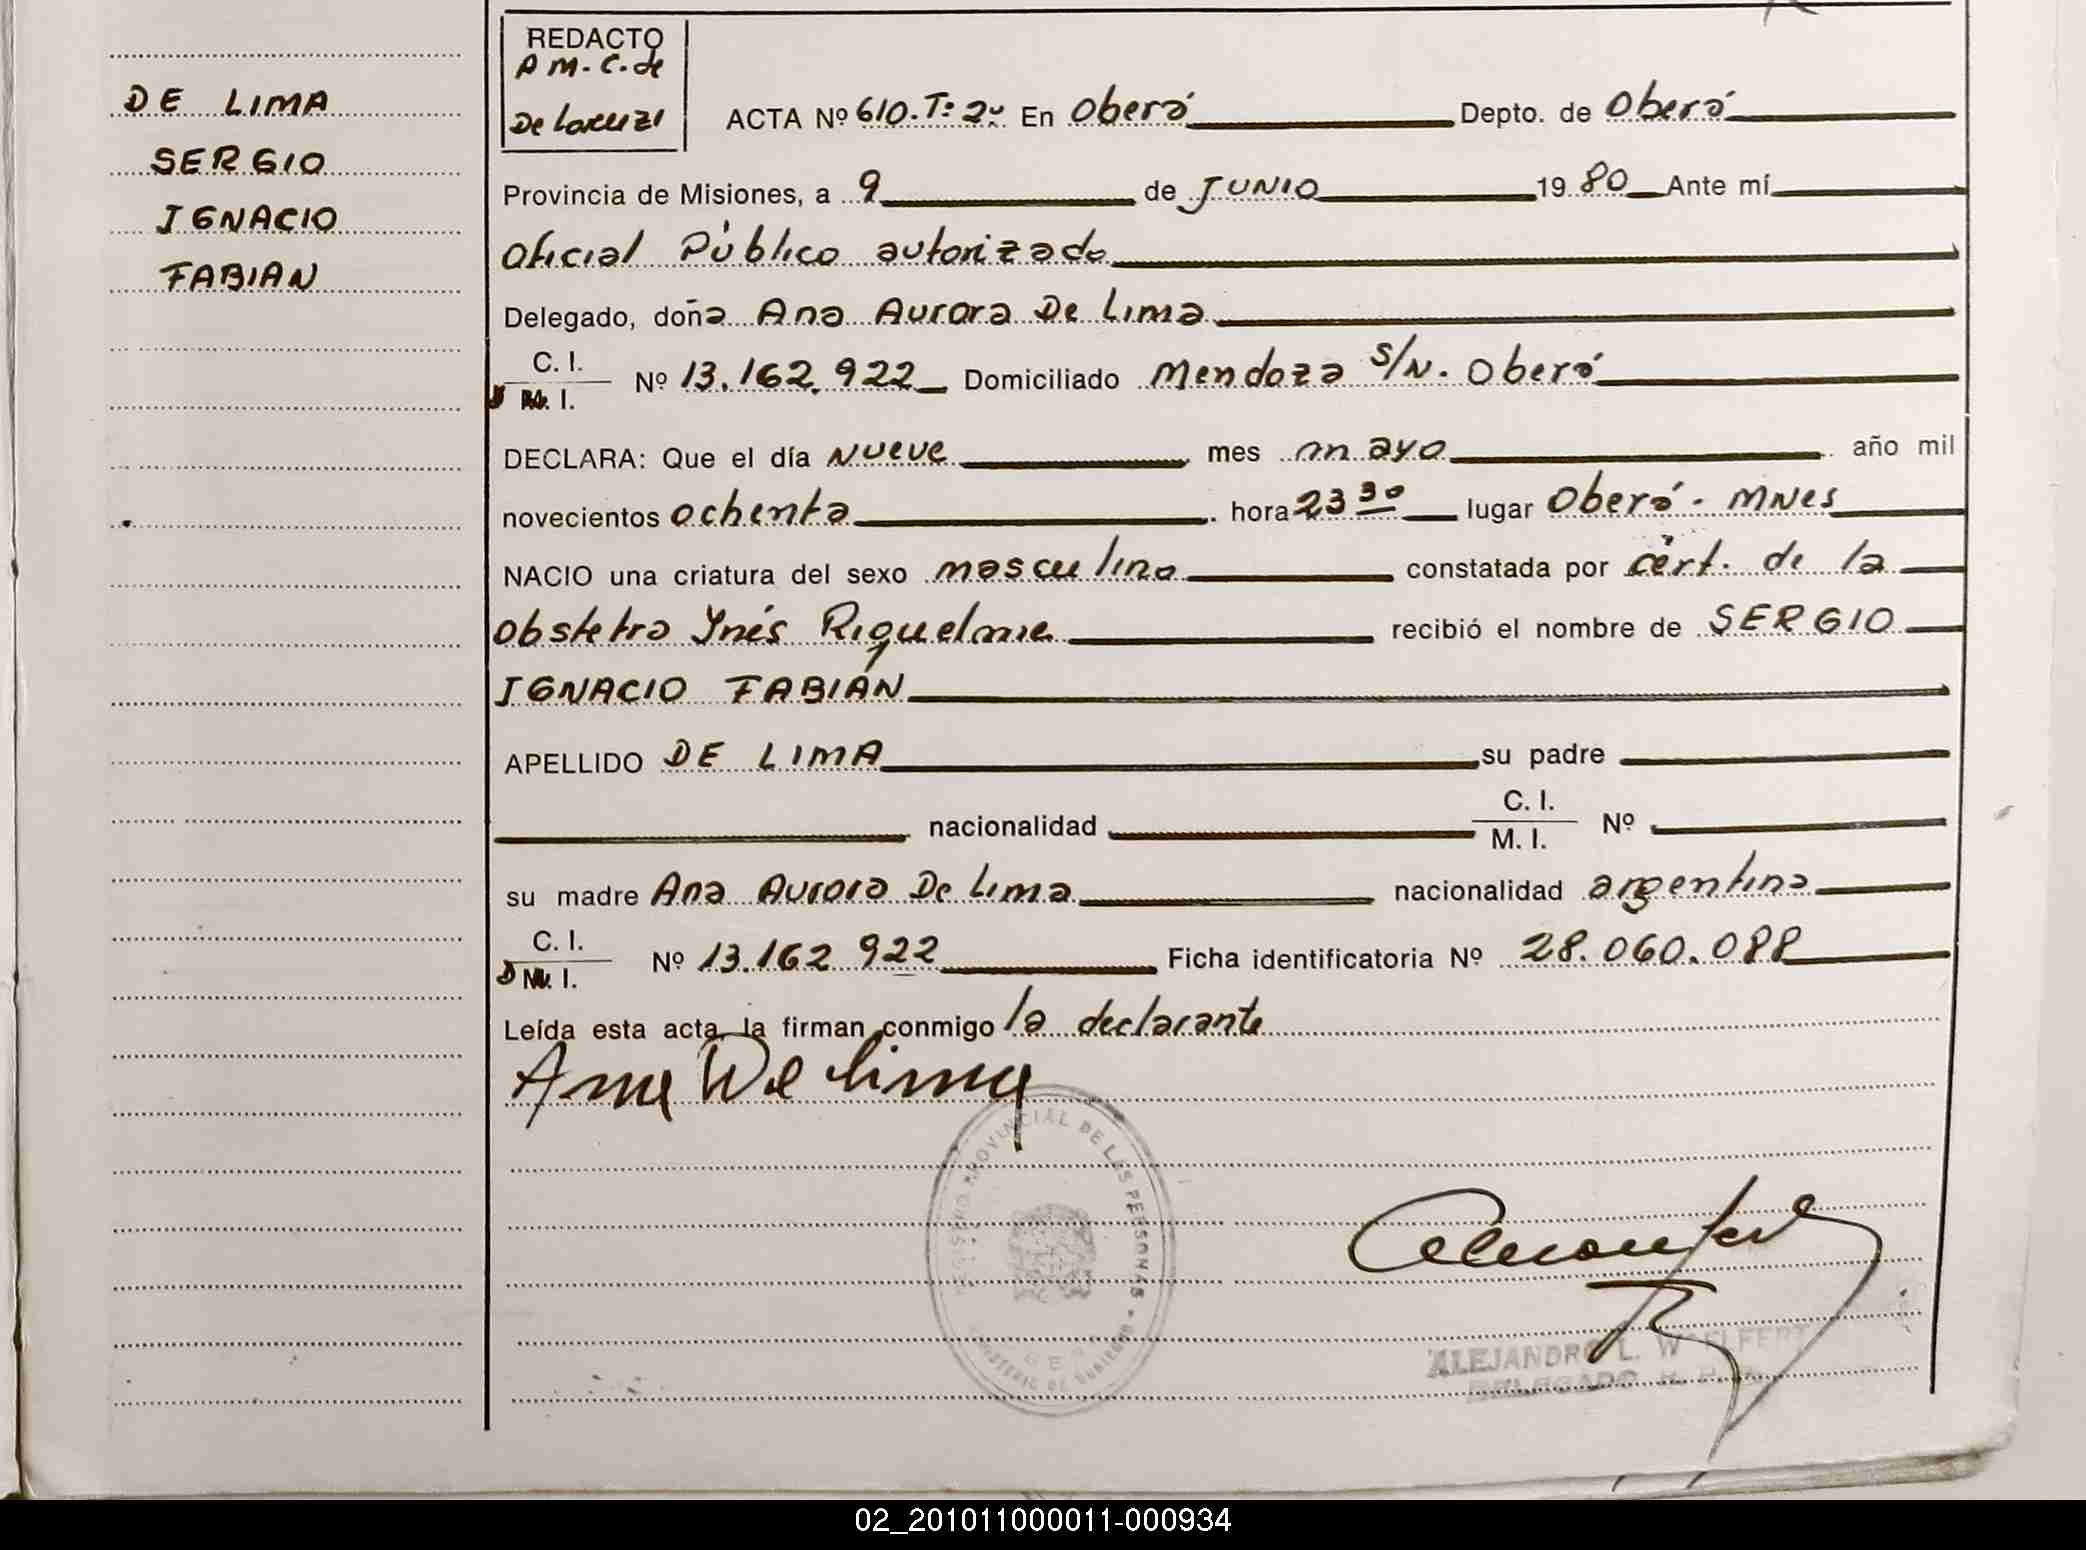 DE LIMA
SERGIO
IGNACIO
FABIAN
REDACTO
A M. C. de
De Lorenzi
ACTA Nº 610. Tº 2º En Oberá Depto. de Oberá
Provincia de Misiones, a 9 de JUNIO 1980 Ante mí
Oficial Público autorizado
Delegado, doña Ana Aurora De Lima
C. I.
D M. I. Nº 13.162.922 Domiciliado Mendoza S/N. Oberá
DECLARA: Que el día nueve mes mayo año mil
novecientos ochenta hora 23 30 lugar Oberá - Mnes
NACIO una criatura del sexo masculino constatada por cert. de la
Obstetra Ynés Riquelme recibió el nombre de SERGIO
IGNACIO FABIAN
APELLIDO DE LIMA su padre
nacionalidad C. I. Nº
M. I.
su madre Ana Aurora De Lima nacionalidad argentina
C. I.
D M. I. Nº 13.162 922 Ficha identificatoria Nº 28.060.088
Leída esta acta, la firman conmigo la declarante
Ana De Lima
REGISTRO PROVINCIAL DE LAS PERSONAS
MINISTERIO DE GOBIERNO
ALEJANDRO L. WAELFERT
DELEGADO R. P.
02_201011000011-000934